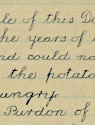 le of this Du
he years of
nd could no
the potato
ungry
Purdon of